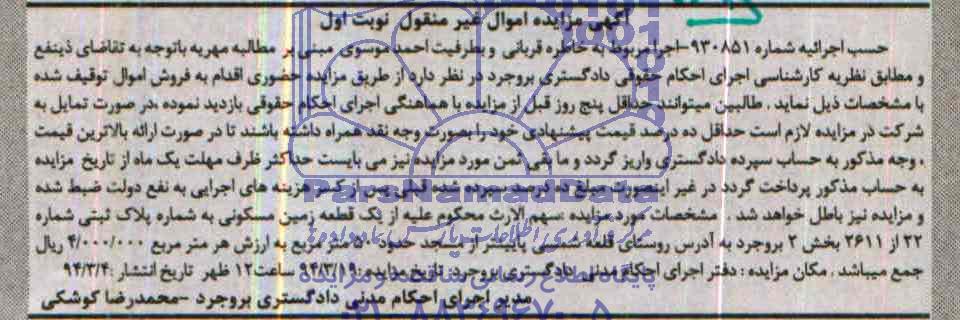 آگهی مزایده اموال غیر منقول نوبت اول
حسب اجرائیه شماره ۹۳۰۸۵۱-اجرا مربوط به خاطره قربانی و بطرفیت احمد موسوی مبنی بر مطالبه مهریه باتوجه به تقاضای ذینفع
و مطابق نظریه کارشناسی اجرای احکام حقوقی دادگستری بروجرد در نظر دارد از طریق مزایده حضوری اقدام به فروش اموال توقیف شده
با مشخصات ذیل نماید . طالبین میتوانند حداقل پنج روز قبل از مزایده با هماهنگی اجرای احکام حقوقی بازدید نموده ،در صورت تمایل به
شرکت در مزایده لازم است حداقل ده درصد قیمت پیشنهادی خود را بصورت وجه نقد همراه داشته باشند تا در صورت ارائه بالاترین قیمت
، وجه مذکور به حساب سپرده دادگستری واریز گردد و ما بقی ثمن مورد مزایده نیز می بایست حداکثر ظرف مهلت یک ماه از تاریخ مزایده
به حساب مذکور پرداخت گردد در غیر اینصورت مبلغ ده درصد سپرده شده قبلی پس از کسر هزینه های اجرایی به نفع دولت ضبط شده
و مزایده نیز باطل خواهد شد . مشخصات مورد مزایده :سهم الارث محکوم علیه از یک قطعه زمین مسکونی به شماره پلاک ثبتی شماره
۲۲ از ۲۶۱۱ بخش ۲ بروجرد به آدرس روستای قلعه شمسی پایینتر از مسجد حدود متر مربع به ارزش هر متر مربع ۴/۰۰۰/۰۰۰ ریال
جمع میباشد . مکان مزایده : دفتر اجرای احکام مدنی دادگستری بروجرد. تاریخ مزایده :۹۴/۳/۱۹ ساعت۱۲ ظهر تاریخ انتشار :۹۴/۳/۴
مدیر اجرای احکام مدنی دادگستری بروجرد -محمدرضا کوشکی
ParsNamadData
پایگاه اطلاع رسانی مناقصه و مزایده
۰۲۱-۸۸۳۴۹۶۷۰-۵